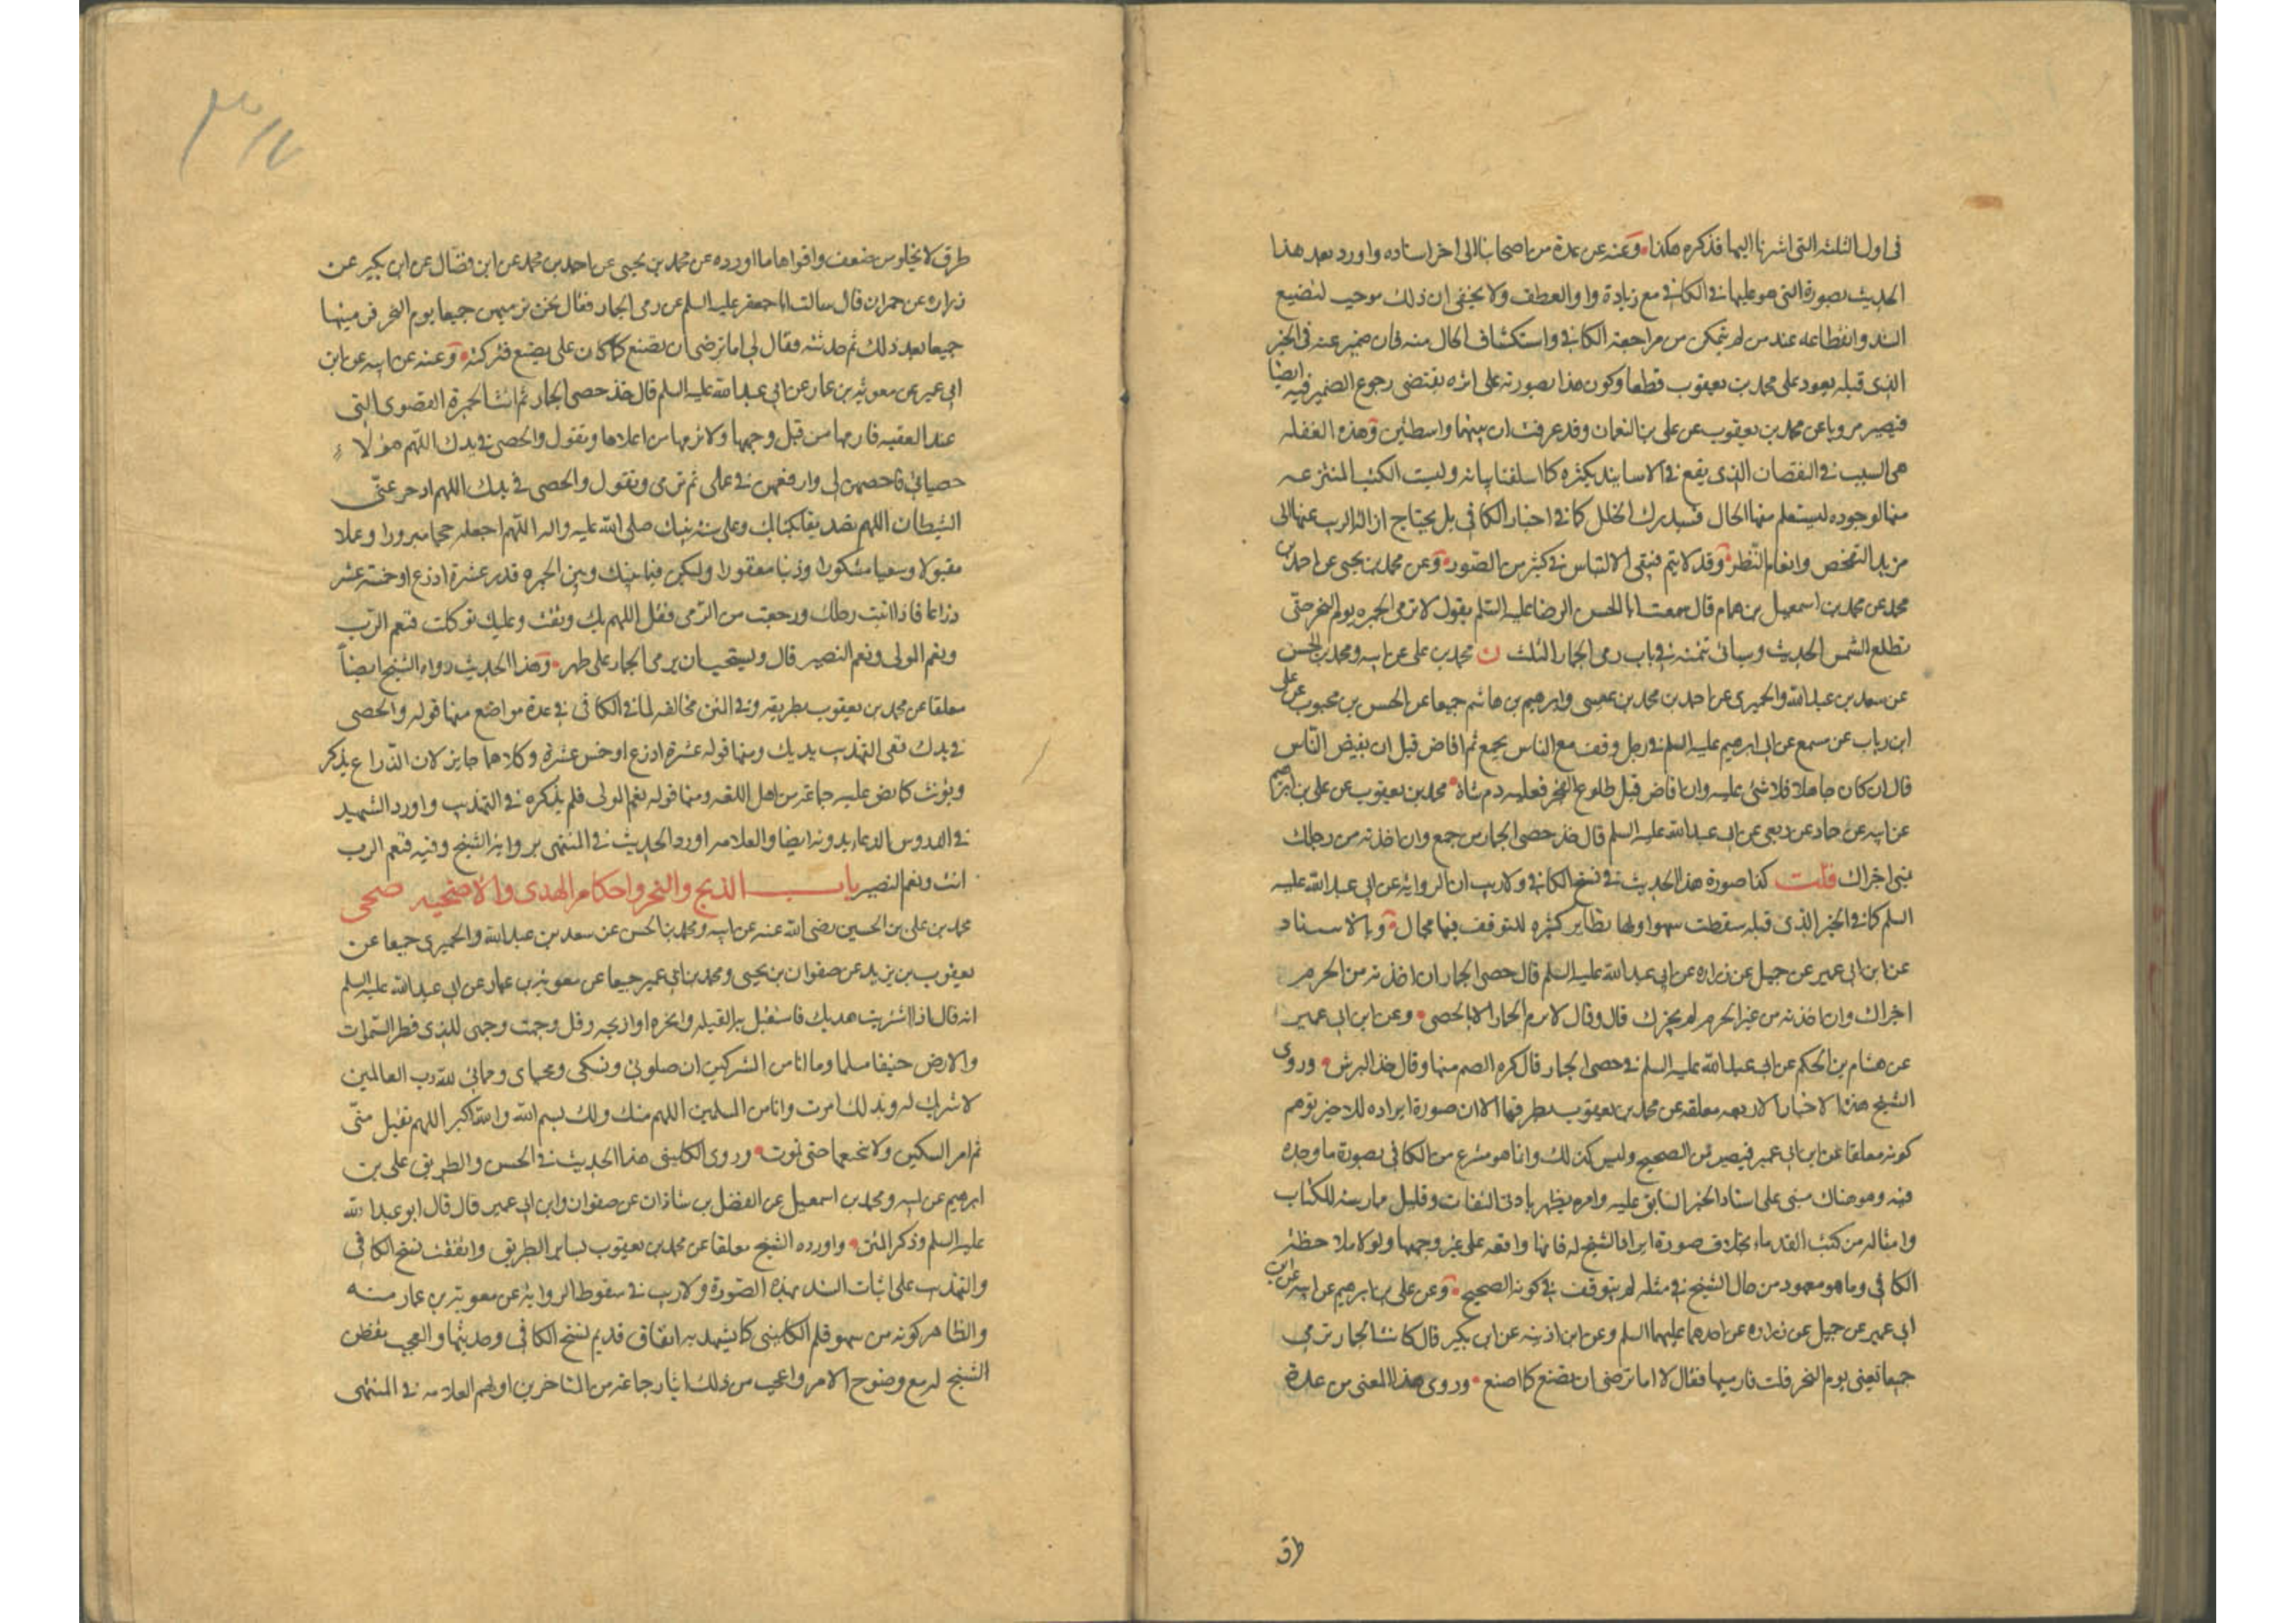 في اول الثلثه التي اشرنا اليها فذكره هكذا وعنه عن عدة من اصحابنا الى اخر اسناده واورد بعد هذا
الحديث بصورة التي هو عليها في الكافي مع زيادة واو العطف ولا يخفى ان ذلك موجب لتضييع
السند وانقطاعه عند من لم يتمكن من مراجعة الكافي واستكشاف الحال منه فان ضمير عنه في الخبر
الذي قبله يعود على محمد بن يعقوب قطعا وكون هذا بصورته على اثره يقتضي رجوع الضمير فيه ايضا
فيصير مرويا عن محمد بن يعقوب عن علي بن النعمان وقد عرفت ان بينهما واسطتين وهذه الغفله
هي السبب في النقصان الذي يقع في الاسانيد بكثره كما اسلفنا بيانه وليست الكتب المنتزعه
منها لوجوده ليستعلم منها الحال فيستدرك الخلل كما في اخبار الكافي بل يحتاج ازالة الريب عنها الى
مزيد التفحص وانعام النظر وقد لا يتم فيبقى الالتباس في كثير من الصور وعن محمد بن يحيى عن احمد بن
محمد عن محمد بن اسمعيل بن همام قال سمعت ابا الحسن الرضا عليه السلم يقول لا ترمي الجمره يوم النحر حتى
تطلع الشمس الحديث وسياتي تتمته في باب رمي الجمار الثلث ن محمد بن علي عن ابيه ومحمد بن الحسن
عن سعد بن عبد الله والحميري عن احمد بن محمد بن عيسى وابرهيم بن هاشم جميعا عن الحسن بن محبوب عن علي
ابن رباب عن مسمع عن ابي ابرهيم عليه السلم في رجل وقف مع الناس بجمع ثم افاض قبل ان يفيض الناس
قال ان كان جاهلا فلا شئ عليه وان افاض قبل طلوع الفجر فعليه دم شاة محمد بن يعقوب عن علي بن ابرهيم
عن ابيه عن حماد عن ربعي عن ابي عبد الله عليه السلم قال خذ حصى الجمار من جمع وان اخذته من رحلك
بمنى اجزاك قلت كذا صورة هذا الحديث في نسخ الكافي ولا ريب ان الروايه عن ابي عبد الله عليه
السلم كما في الخبر الذي قبله سقطت سهوا ولها نظاير كثيره للتوقف فيها مجال وبالاسناد
عن ابن ابي عمير عن جميل عن زراره عن ابي عبد الله عليه السلم قال حصى الجمار ان اخذته من الحرم
اجزاك وان اخذته من غير الحرم لم يجزك قال وقال لا ترم الجمار الا بالحصى وعن ابن ابي عمير
عن هشام بن الحكم عن ابي عبد الله عليه السلم في حصى الجمار قال كره الصم منها وقال خذ البرش وروى
الشيخ هذه الاخبار الاربعه معلقه عن محمد بن يعقوب بطرقها الا ان صورة ايراده للاخير توهم
كونه معلقا عن ابن ابي عمير فيصير من الصحيح وليس كذلك وانما هو منتزع من الكافي بصورة ما وجده
فيه وهو هناك مبني على اسناد الخبر السابق عليه وامره يظهر بادنى التفات وقليل ممارسة للكتاب
وامثاله من كتب القدماء بخلاف صورة ايراد الشيخ له فانها واقعه على غير وجهها ولولا ملاحظة
الكافي وما هو معهود من حال الشيخ في مثله لم يتوقف في كونه الصحيح وعن علي بن ابرهيم عن ابيه عن ابن
ابي عمير عن جميل عن زراره عن احدهما عليهما السلم وعن ابن اذينه عن ابن بكير قال كانت الجمار ترمى
جميعا يعني يوم النحر قلت فارميها فقال لا اما ترضى ان تصنع كما اصنع وروى هذا المعنى من عدة
طرق
طرق لا يخلو من ضعف واقواها ما اورده عن محمد بن يحيى عن احمد بن محمد عن ابن فضال عن ابن بكير عن
زراره عن حمران قال سالت ابا جعفر عليه السلم عن رمي الجمار فقال كن ترمين جميعا يوم النحر فرميتها
جميعا بعد ذلك ثم حدثته فقال لي اما ترضى ان تصنع كما كان علي يصنع فتركته وعنه عن ابيه عن ابن
ابي عمير عن معويه بن عمار عن ابي عبد الله عليه السلم قال خذ حصى الجمار ثم ائت الجمرة القصوى التي
عند العقبه فارمها من قبل وجهها ولا ترمها من اعلاها وتقول والحصى في يدك اللهم هؤلاء
حصياتي فاحصهن لي وارفعهن في عملي ثم ترمي وتقول والحصى في يدك اللهم ادحر عني
الشيطان اللهم تصديقا بكتابك وعلى سنة نبيك صلى الله عليه واله اللهم اجعله حجا مبرورا وعملا
مقبولا وسعيا مشكورا وذنبا مغفورا وليكن فيما بينك وبين الجمره قدر عشرة اذرع او خمسة عشر
ذراعا فاذا اتيت رحلك ورجعت من الرمي فقل اللهم بك وثقت وعليك توكلت فنعم الرب
ونعم المولى ونعم النصير قال ويستحب ان يرمي الجمار على طهر وهذا الحديث رواه الشيخ ايضاً
معلقا عن محمد بن يعقوب بطريقه وفي المتن مخالفه لما في الكافي في عدة مواضع منها قوله والحصى
في يدك ففي التهذيب يديك ومنها قوله عشرة اذرع او خمس عشرة وكلاهما جايز لان الذراع يذكر
ويؤنث كما نص عليه جماعة من اهل اللغه ومنها قوله نعم المولى فلم يذكره في التهذيب واورد الشهيد
في الدروس الدعاء بدونه ايضا والعلامه اورد الحديث في المنتهى برواية الشيخ وفيه فنعم الرب
انت ونعم النصير باب الذبح والنحر واحكام الهدى والاضحيه صحي
محمد بن علي بن الحسين رضى الله عنه عن ابيه ومحمد بن الحسن عن سعد بن عبد الله والحميري جميعا عن
يعقوب بن يزيد عن صفوان بن يحيى ومحمد بن ابي عمير جميعا عن معويه بن عمار عن ابي عبد الله عليه السلم
انه قال اذا اشتريت هديك فاستقبل به القبله وانحره او اذبحه وقل وجهت وجهي للذي فطر السموات
والارض حنيفا مسلما وما انا من المشركين ان صلوتي ونسكي ومحياي ومماتي لله رب العالمين
لا شريك له وبذلك امرت وانا من المسلمين اللهم منك ولك بسم الله والله اكبر اللهم تقبل منّي
ثم امر السكين ولا تنخعها حتى تموت وروى الكليني هذا الحديث في الحسن والطريق علي بن
ابرهيم عن ابيه ومحمد بن اسمعيل عن الفضل بن شاذان عن صفوان وابن ابي عمير قال قال ابو عبد الله
عليه السلم وذكر المتن واورده الشيخ معلقا عن محمد بن يعقوب بساير الطريق واتفقت نسخ الكافي
والتهذيب على اثبات السند بهذه الصورة ولا ريب في سقوط الرواية عن معوية بن عمار منه
والظاهر كونه من سهو قلم الكليني كما يشهد به اتفاق قديم نسخ الكافي وحديثها والعجب
الشيخ له مع وضوح الامر واعجب من ذلك ايثار جماعة من المتاخرين اولهم العلامه في المنتهى